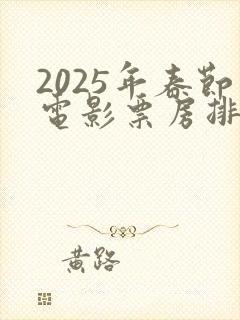 2025年春節
電影票房排
黃路